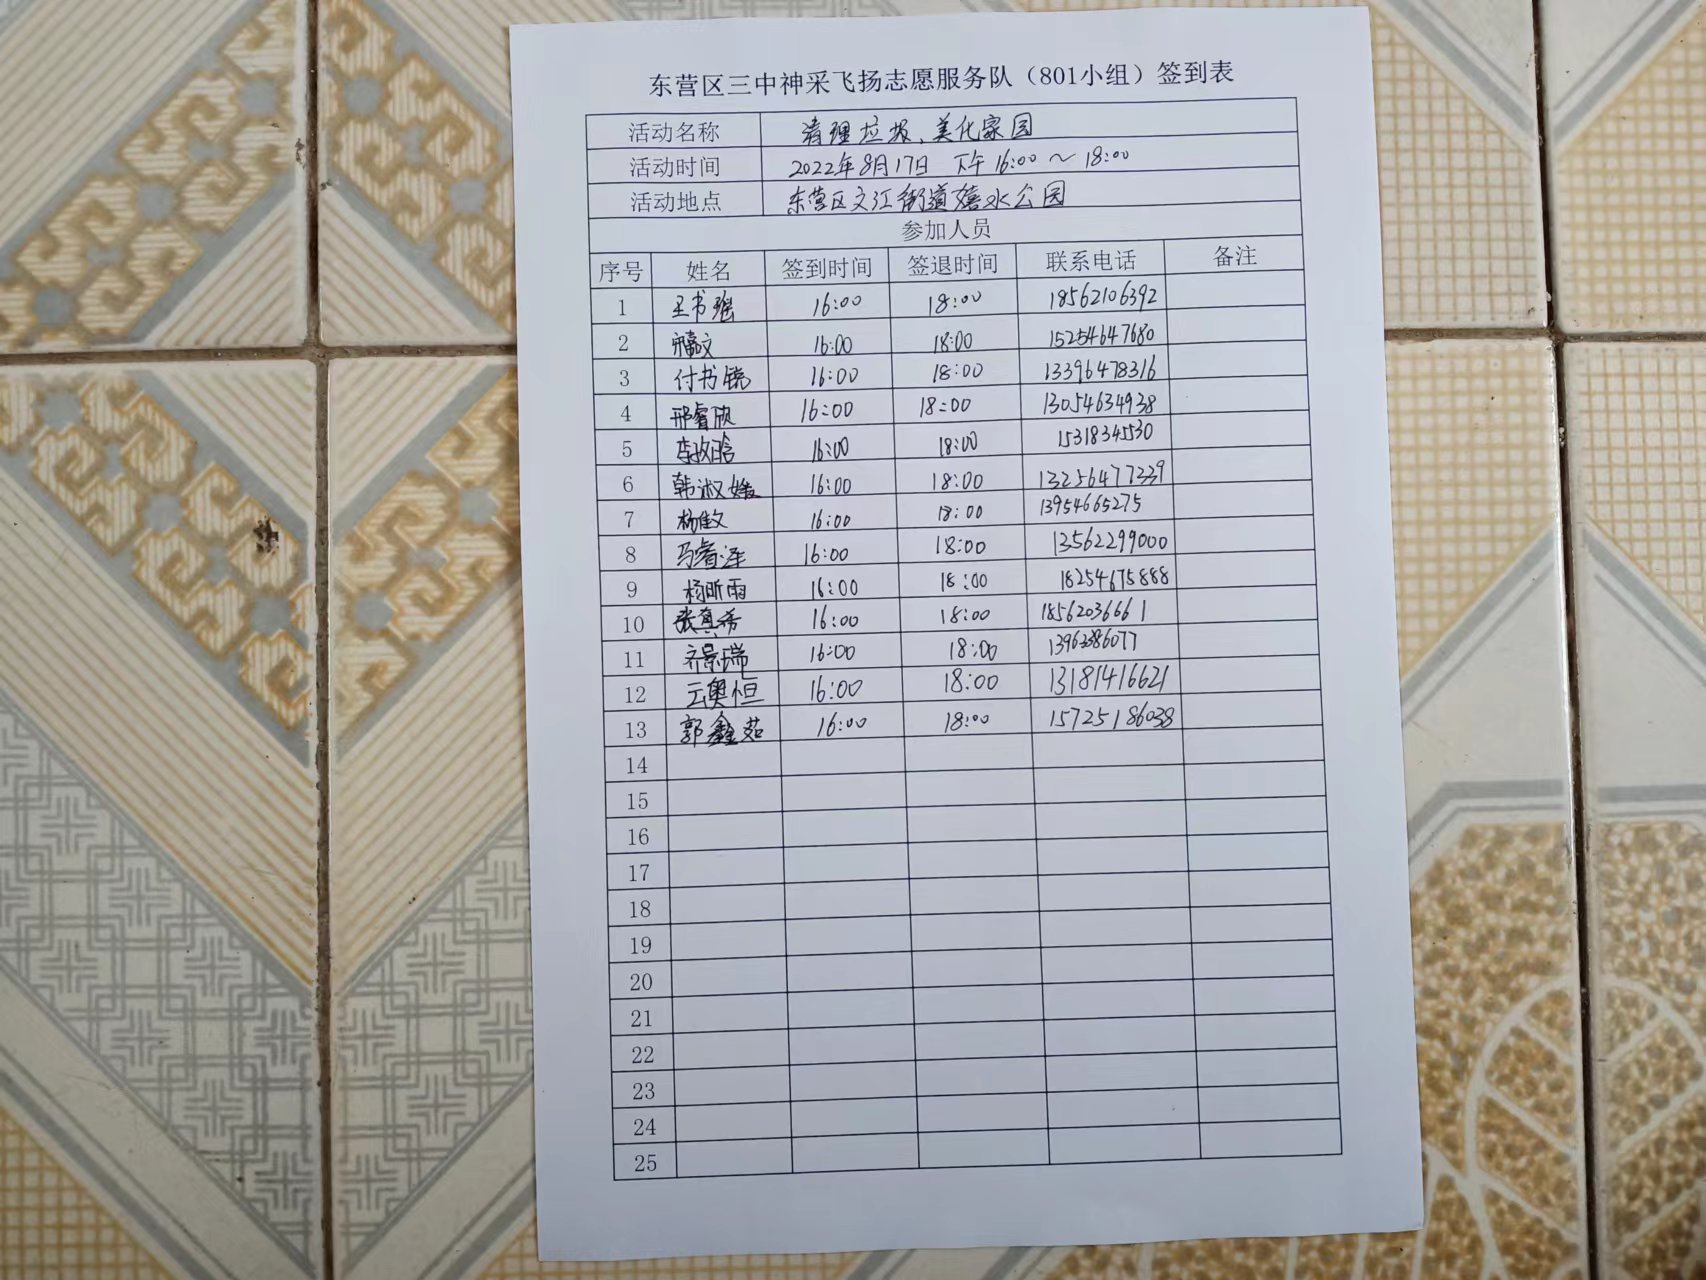 东营区三中神采飞扬志愿服务队（801小组）签到表
活动名称 清理垃圾、美化家园
活动时间 2022年8月17日 下午 16:00～18:00
活动地点 东营区文汇街道嬉水公园
参加人员
序号 姓名 签到时间 签退时间 联系电话 备注
1 王书瑶 16:00 18:00 18562106392
2 16:00 18:00 15254647680
3 付书铙 16:00 18:00 13396478316
4 邢睿欣 16:00 18:00 13054634938
5 李玫晗 16:00 18:00 1531834530
6 韩淑媛 16:00 18:00 13256477339
7 16:00 18:00 13954665275
8 马睿泽 16:00 18:00 13562299000
9 杨昕雨 16:00 18:00 18254675888
10 张真希 16:00 18:00 18562036661
11 齐景瑞 16:00 18:00 13963386077
12 云奥恒 16:00 18:00 13181416621
13 郭鑫茹 16:00 18:00 15725186038
14
15
16
17
18
19
20
21
22
23
24
25